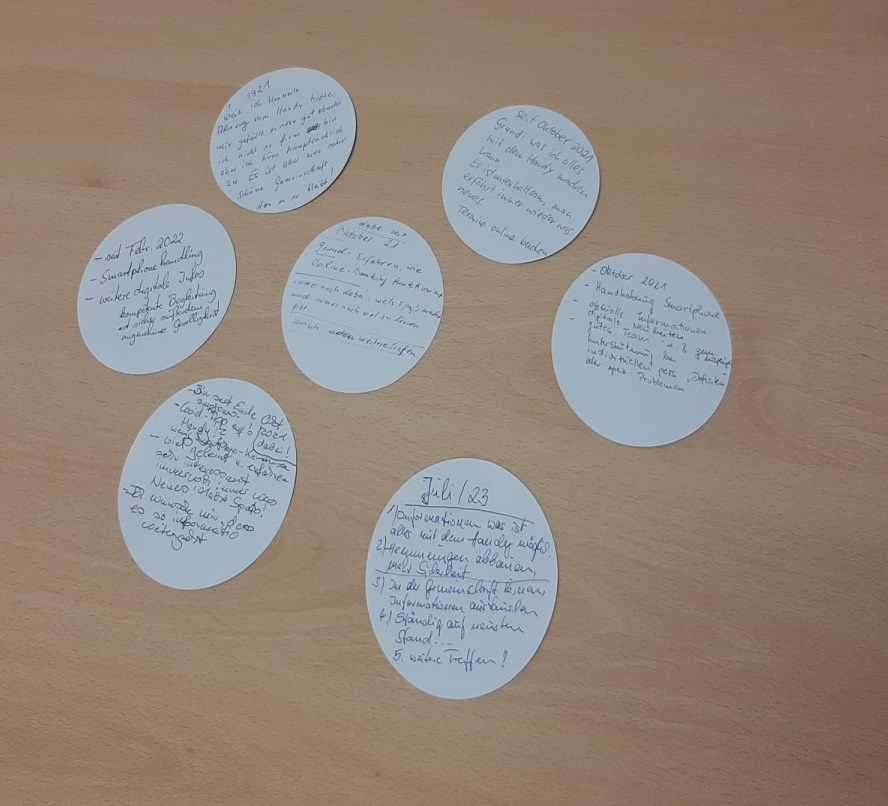 1921
weil ich keinerlei
Ahnung vom Handy hatte
mir gefällt es sehr gut obwohl
ich nicht so firm bin
aber ich höre hauptsächlich
zu Es ist aber eine sehr
schöne Gemeinschaft
den es so bleibt!
seit Oktober 2021
Grund: was ich alles
mit dem Handy machen
kann
Es ist unterhaltsam, man
erfährt immer wieder was
neues.
Termine online buchen
- seit Febr. 2022
- Smartphonehandling
- weitere digitale Infos
kompetente Begleitung
ist sicher außerdem
angenehme Geselligkeit
dabei seit
Oktober 21
Grund: Erfahren, wie
Online-Banking funktioniert
immer noch dabei, weils Spaß macht
und immer noch viel zu lernen
gibt
weitere Treffen
- Oktober 2021
- Handhabung Smartphone
- aktuelle Informationen
digitale Neuheiten
- gutes Team
Unterstützung bei
individuellen pers. Defiziten
oder spez. Problemen
- Bin seit Ende Okt
2021
dabei!
- Covid-App auf's
Handy!
- Viel gelernt u. erfahren
sehr interessant
immer noch immer was
Neues! Macht Spaß!
- Ich wünsche mir, dass
es so informativ
weitergeht
Juli/23
1) Informationen was ist
alles mit dem Handy möglich.
2) Hemmungen abbauen,
mehr Sicherheit
3) In der Gemeinschaft lernen,
Informationen austauschen
4) Ständig auf neusten
Stand...
5. weitere Treffen!